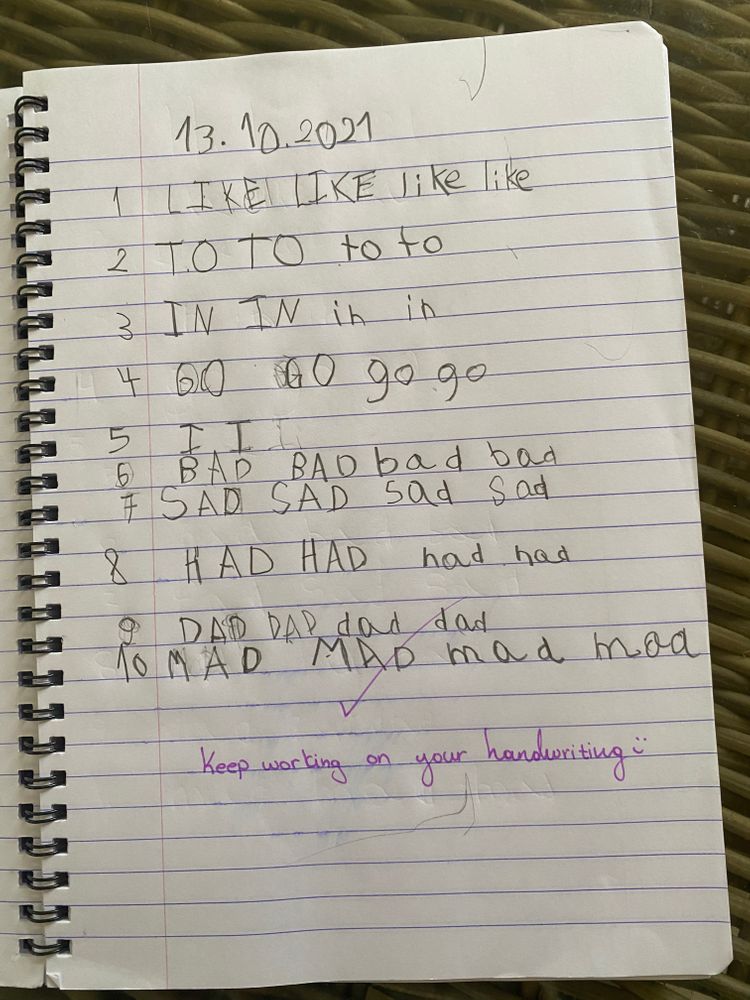 13.10.2021
1 LIKE LIKE like like
2 TO TO to to
3 IN IN in in
4 GO GO go go
5 I I I
6 BAD BAD bad bad
7 SAD SAD sad sad
8 HAD HAD had had
9 DAD DAD dad dad
10 MAD MAD mad mad
Keep working on your handwriting :)